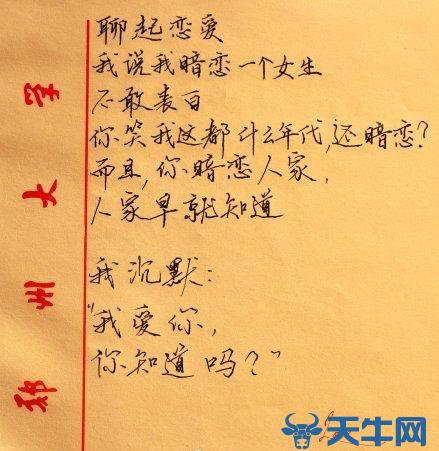 聊起恋爱
我说我暗恋一个女生
不敢表白
你笑我这都什么年代,还暗恋?
而且,你暗恋人家,
人家早就知道
我沉默:
"我爱你,
你知道吗?"
郑州大学
天牛网